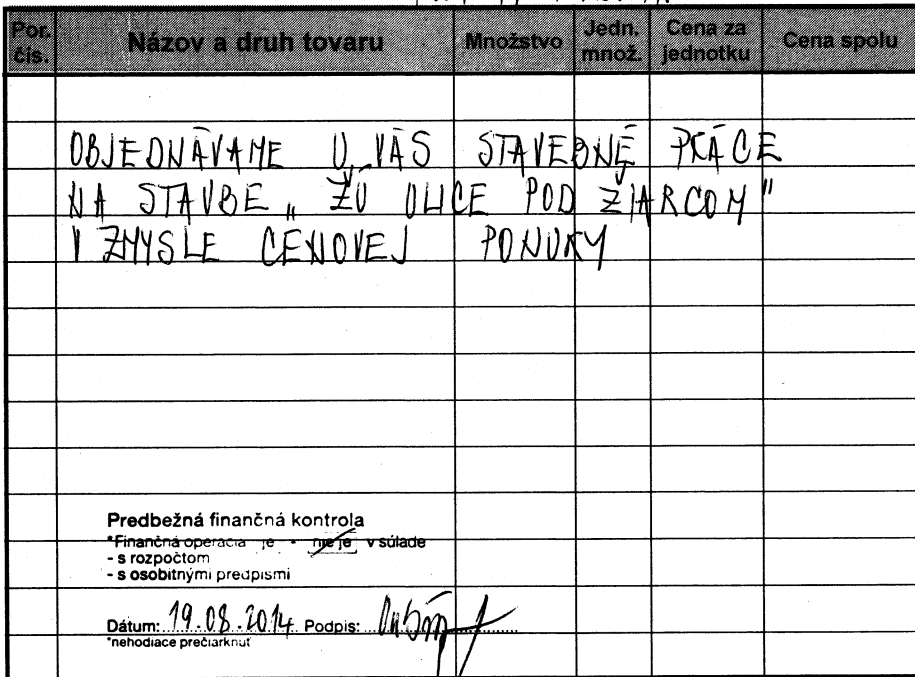 Por. čís. Názov a druh tovaru Množstvo Jedn. množ. Cena za jednotku Cena spolu
OBJEDNÁVAME U VÁS STAVEBNÉ PRÁCE
NA STAVBE „ ŽŮ ULICE POD ŽIARCOM"
V ZMYSLE CENOVEJ PONUKY
Predbežná finančná kontrola
*Finančná operácia je - nie je v súlade
- s rozpočtom
- s osobitnými predpismi
Dátum: 19.08.2014 Podpis:
*nehodiace prečiarknuť